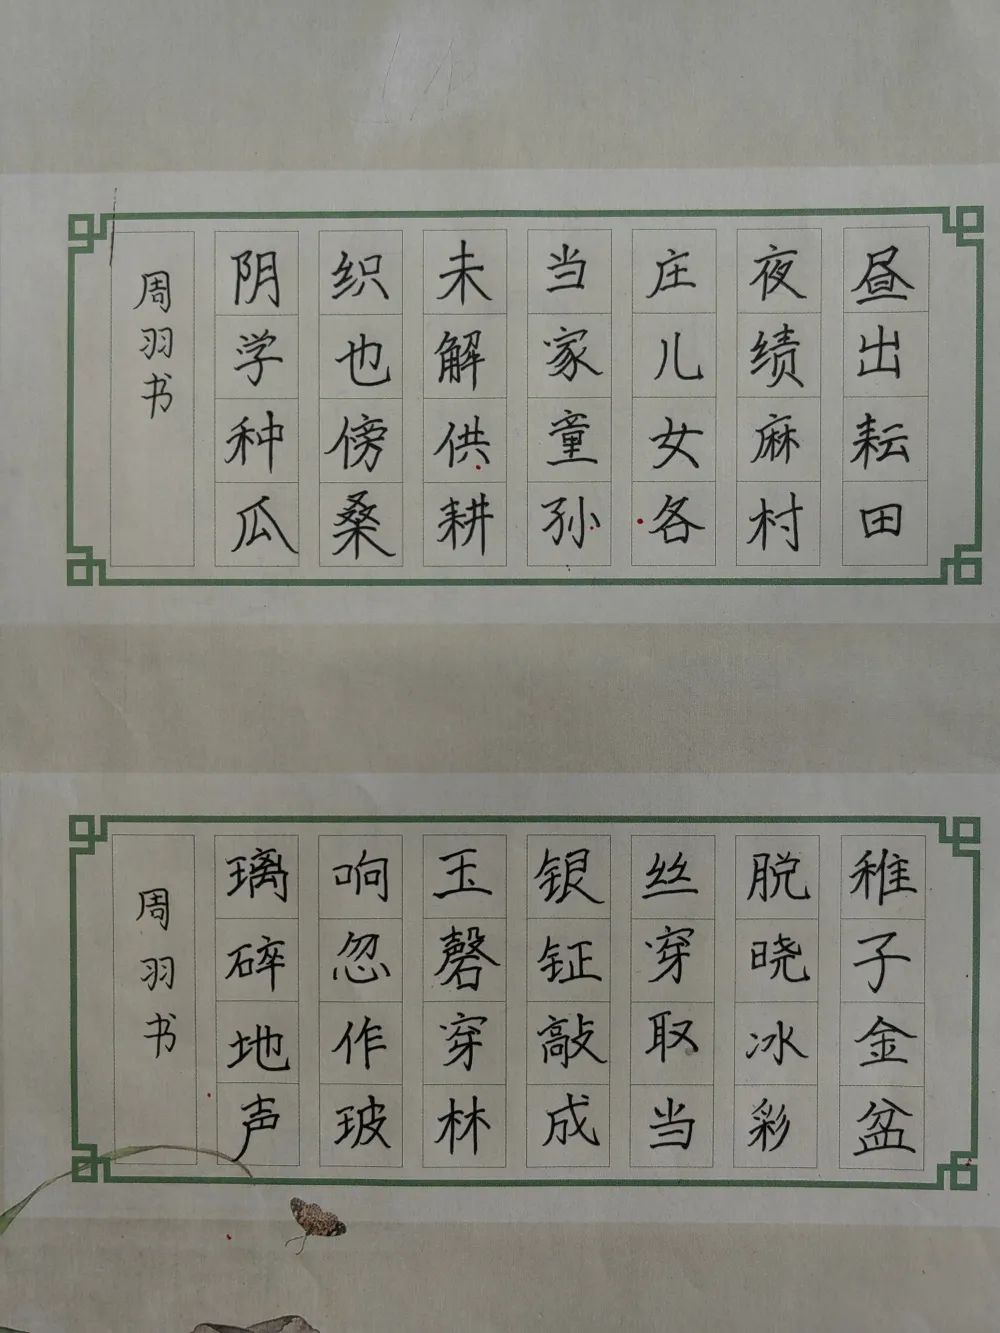 昼出耘田
夜绩麻村
庄儿女各
当家童孙
未解供耕
织也傍桑
阴学种瓜
周羽书
稚子金盆
脱晓冰彩
丝穿取当
银钲敲成
玉磬穿林
响忽作玻
璃碎地声
周羽书